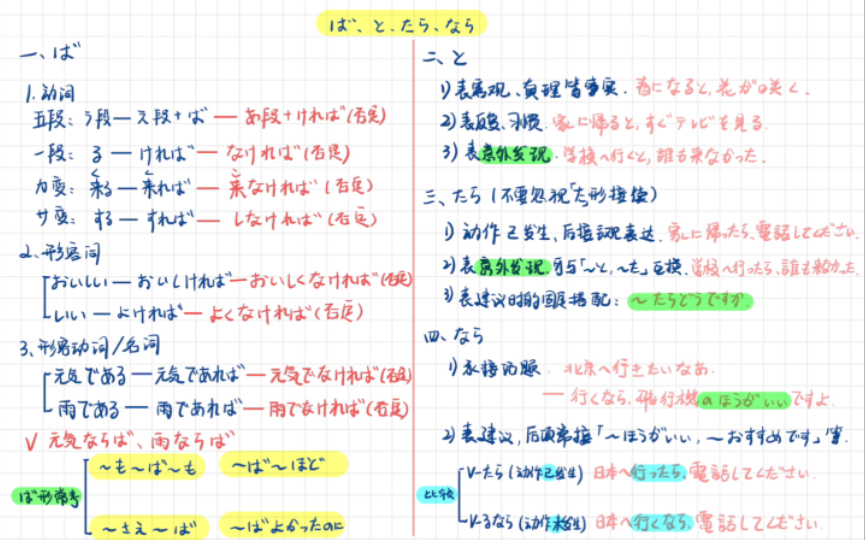 ば、と、たら、なら
一、ば
1.动词
五段：う段—え段+ば—あ段+なければ(否定)
一段：る—ければ—なければ(否定)
カ変：来る—来れば—来なければ(否定)
く く こ
サ変：する—すれば—しなければ(否定)
2.形容词
おいしい—おいしければ—おいしくなければ(否定)
いい—よければ—よくなければ(否定)
3.形容动词/名词
元気である—元気であれば—元気でなければ(否定)
雨である—雨であれば—雨でなければ(否定)
√ 元気ならば、雨ならば
ば形常考
～も～ば～も ～ば～ほど
～さえ～ば ～ばよかったのに
二、と
1)表客观、真理皆事实.春になると,花が咲く.
2)表反复、习惯.家に帰ると,すぐテレビを見る.
3)表意外发现.学校へ行くと,誰も来なかった.
三、たら(不要忽视「た」形接续)
1)动作已发生、后接意志表达.家に帰ったら、電話してください.
2)表意外发现.可与「～と,～た」互换.学校へ行ったら、誰も来なかった.
3)表建议时的固定搭配:～たらどうですか
四、なら
1)承接话题.北京へ行きたいなあ.
—行くなら,飛行機のほうがいいですよ.
2)表建议,后项常接「～ほうがいい,～おすすめです」等.
比较
V-たら(动作已发生)日本へ行ったら,電話してください.
V-るなら(动作未发生)日本へ行くなら,電話してください.